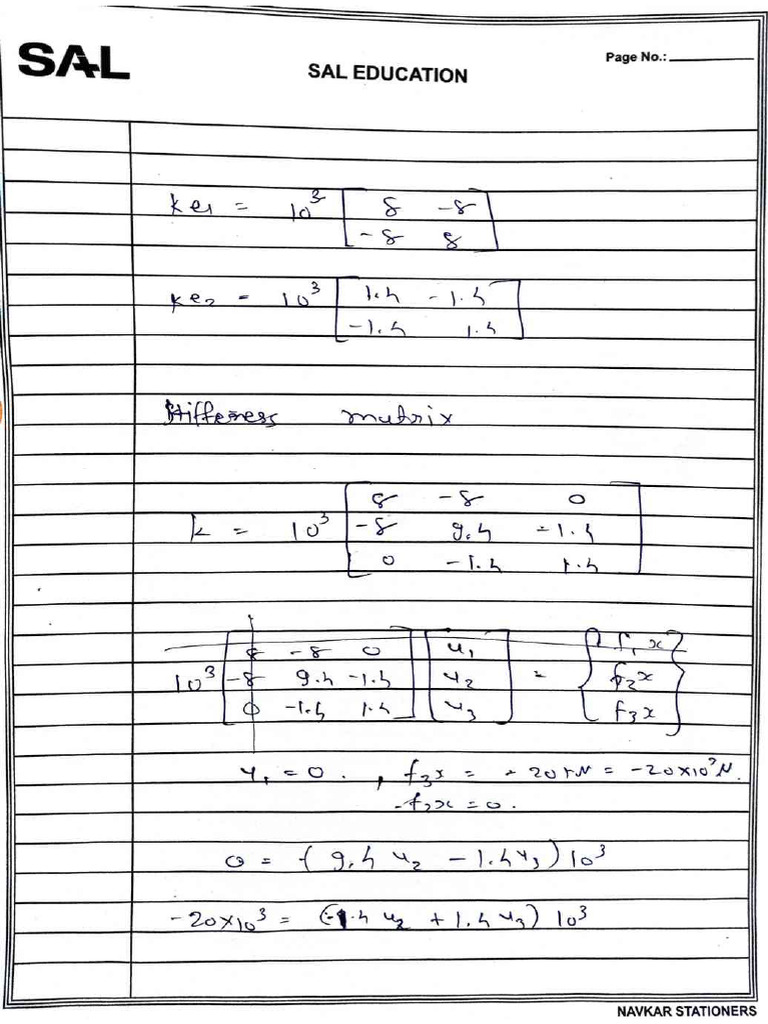 SAL
SAL EDUCATION
Page No.:
ke1 = 10³ [ 8 -8
-8 8 ]
ke2 = 10³ [ 1.5 -1.5
-1.5 1.5 ]
Stiffeness matrix
k = 10³ [ 8 -8 0
-8 9.5 -1.5
0 -1.5 1.5 ]
10³ [ 8 -8 0 ] [ u1 ] = { f1x }
-8 9.5 -1.5 u2 f2x
0 -1.5 1.5 u3 f3x
u1 = 0. , f3x = - 20 kN = -20×10³ N.
f2x = 0.
0 = (9.5 u2 - 1.5 u3) 10³
-20×10³ = (-1.5 u2 + 1.5 u3) 10³
NAVKAR STATIONERS